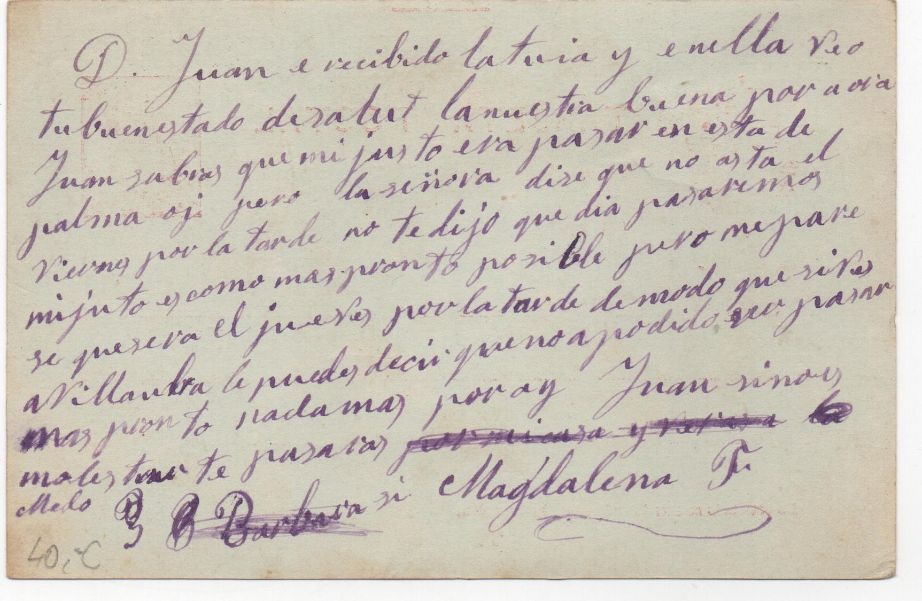 D. Juan e recibido la tuia y enella veo
tubuenestado desalut lanuestra buena por aora
Juan sabras que mijusto era pasar en esta de
palma oi pero la señora dise que no asta el
viernes por la tarde no te dijo que dia pasaremos
mijusto es como mas pronto posible pero me pare
se quesera el jueves por la tarde de modo que si ves
a le puedes decir que no a podido ser pasar
mas pronto nada mas por oy Juan sinoes
molestar te pasaras por mi casa y
Melo B B Barbara si Magdalena F.
40,C